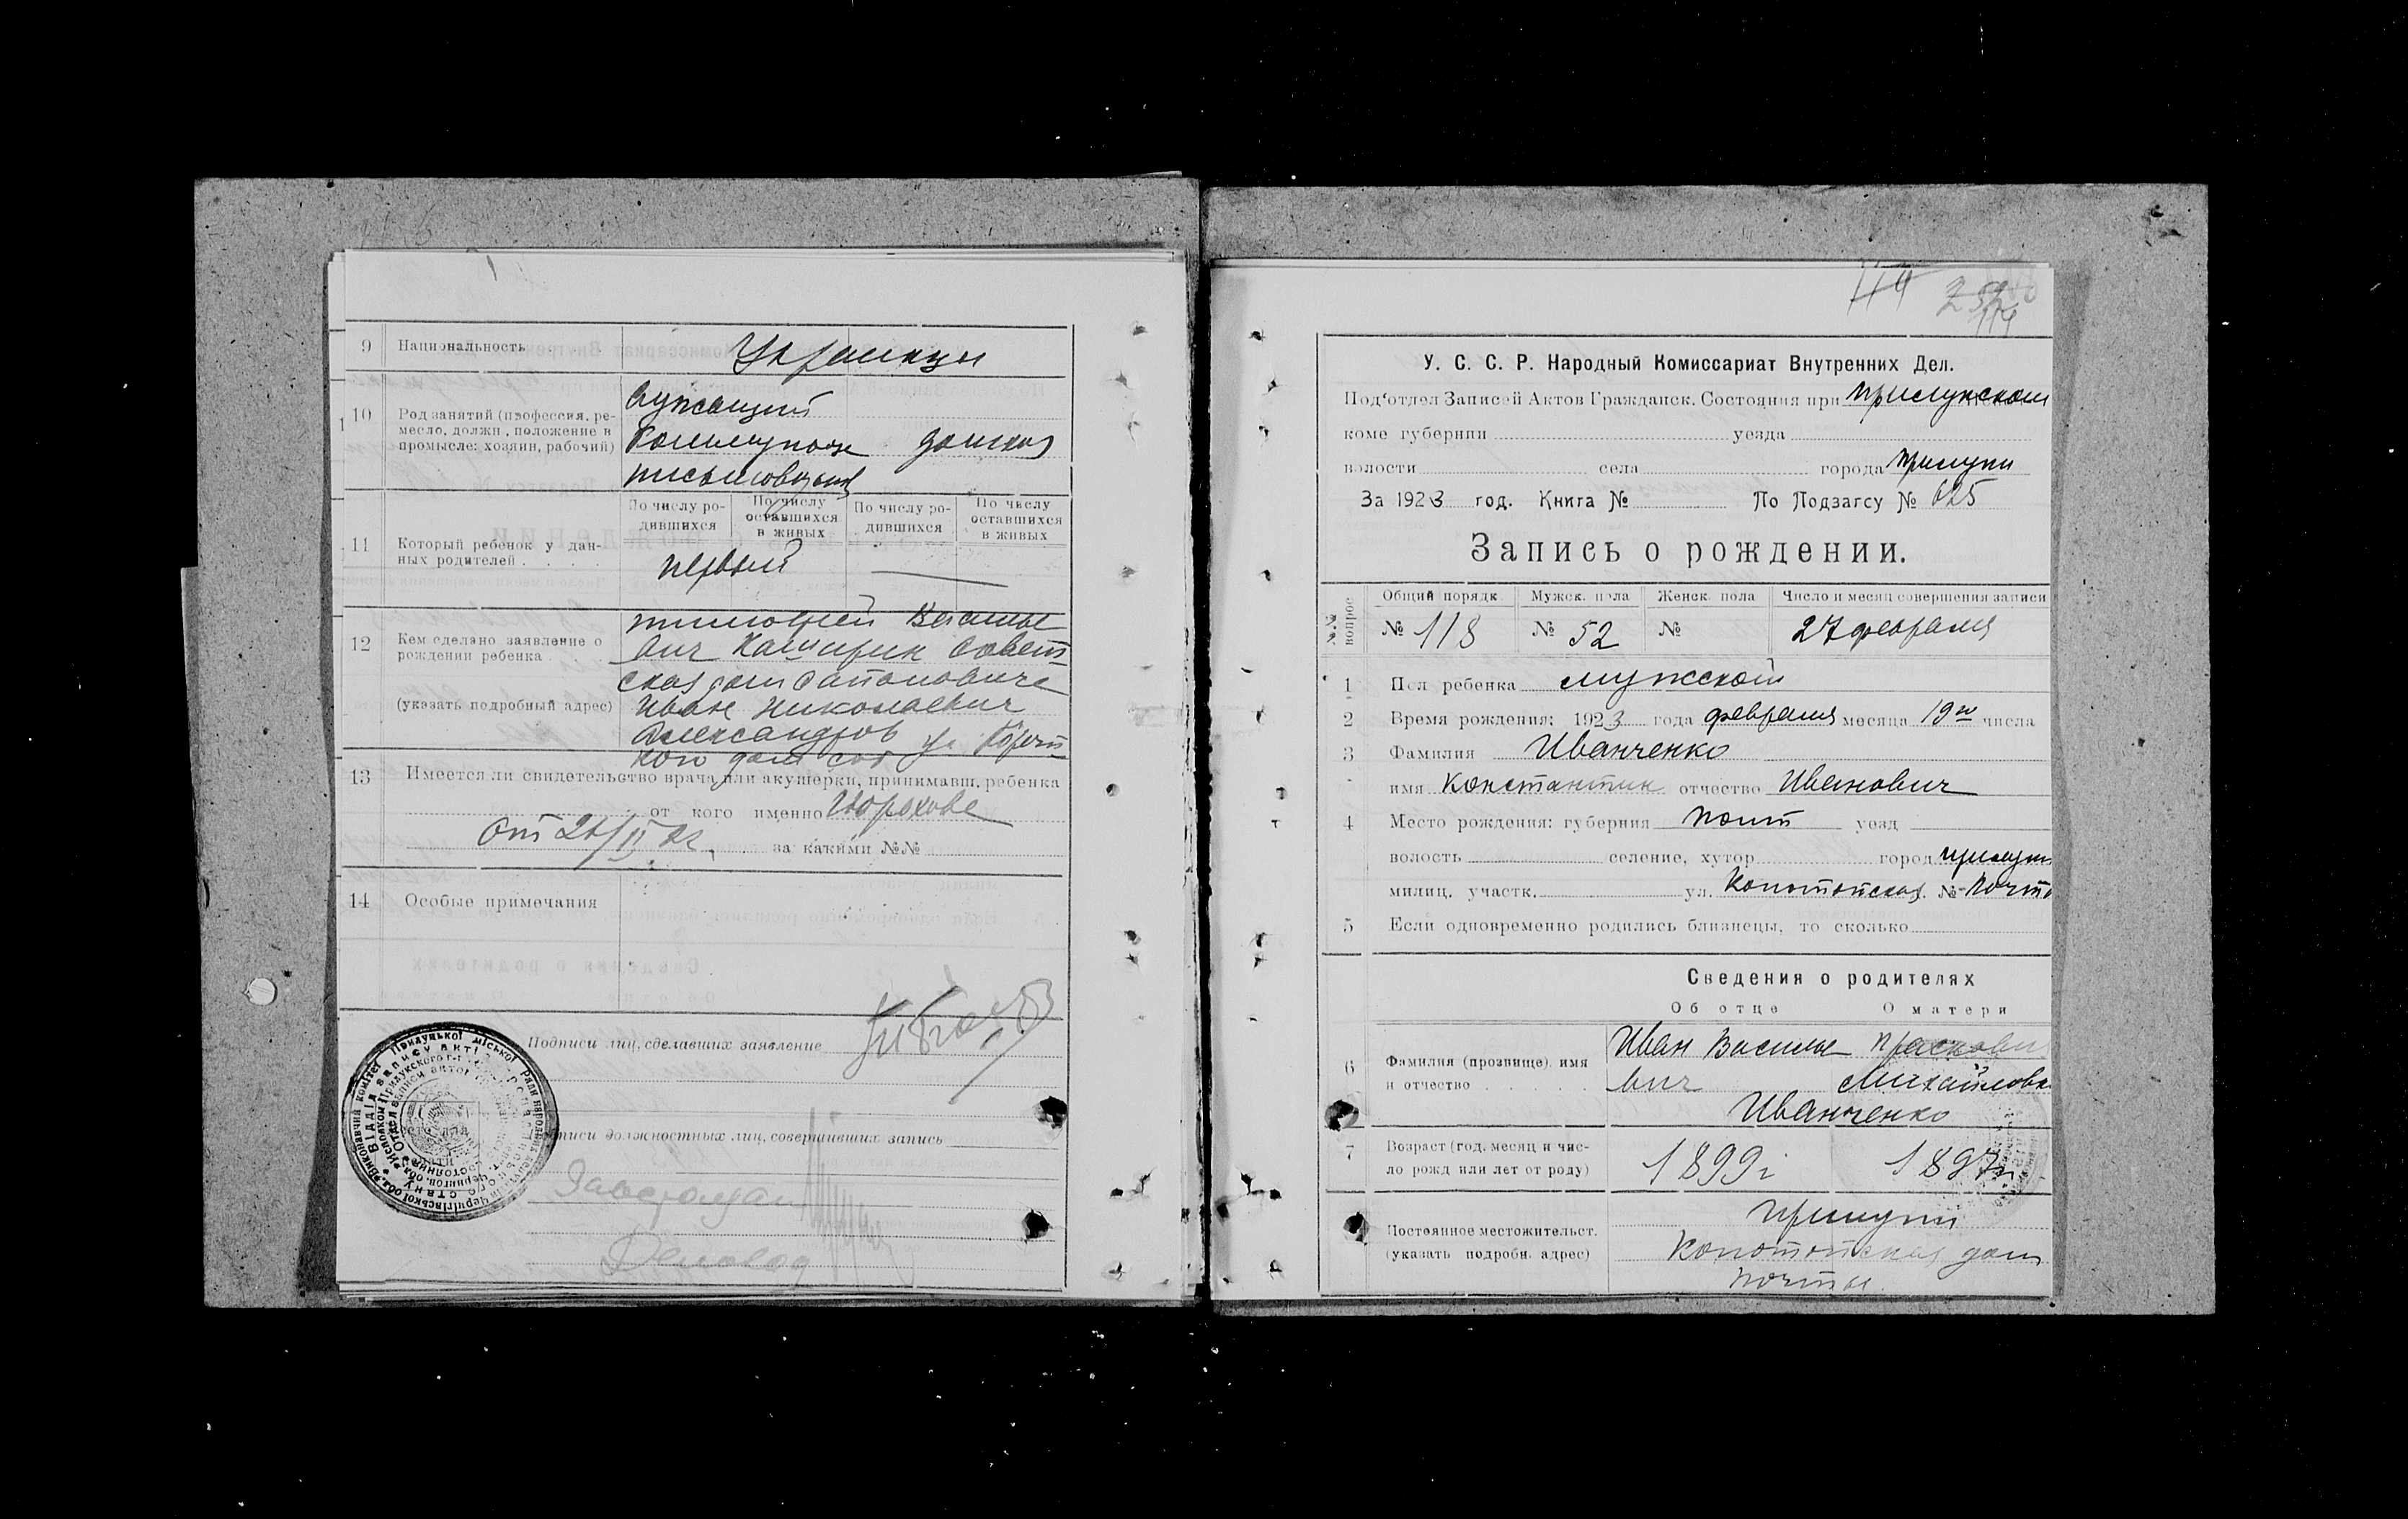 9 Национальность
Украинцы
10 Род занятий (профессия, ре-
месло, должн., положение в
промысле: хозяин, рабочий)
служащий
домхоз
11 Который ребенок у дан-
ных родителей . . . .
По числу ро-
дившихся
По числу
оставшихся
в живых
По числу ро-
дившихся
По числу
оставшихся
в живых
первый
12 Кем сделано заявление о
рождении ребенка
(указать подробный адрес)
Тимофей Василье
вич Каширин Совет
ская дом
Иван Николаевич
Александров ул
13 Имеется ли свидетельство врача или акушерки, принимавш. ребенка
от кого именно
от за какими №№
14 Особые примечания
Подписи лиц, сделавших заявление
писи должностных лиц, совершивших запись
Деловод
114 252
114
У. С. С. Р. Народный Комиссариат Внутренних Дел.
Под'отдел Записей Актов Гражданск. Состояния при Прилукском
коме губернии уезда
волости села города Прилуки
За 1923 год. Книга № По Подзагсу № 625
Запись о рождении.
№№ вопрос.
Общий порядк. Мужск. пола Женск. пола Число и месяц совершения записи
№ 118 № 52 № 27 февраля
1 Пол ребенка мужской
2 Время рождения: 1923 года февраля месяца 19го числа
3 Фамилия Иванченко
имя Константин отчество Иванович
4 Место рождения: губерния Полт уезд
волость селение, хутор город Прилуки
милиц. участк. ул. Конотопская № Почта
5 Если одновременно родились близнецы, то сколько
Сведения о родителях
Об отце О матери
6 Фамилия (прозвище), имя
и отчество . . . . .
Иван Василье Прасковия
вич Михайловна
Иванченко
7 Возраст (год, месяц и чис-
ло рожд. или лет от роду)
1899г 1897г
Постоянное местожительст.
(указать подробн. адрес)
Прилуки
Конотопская дом
почты